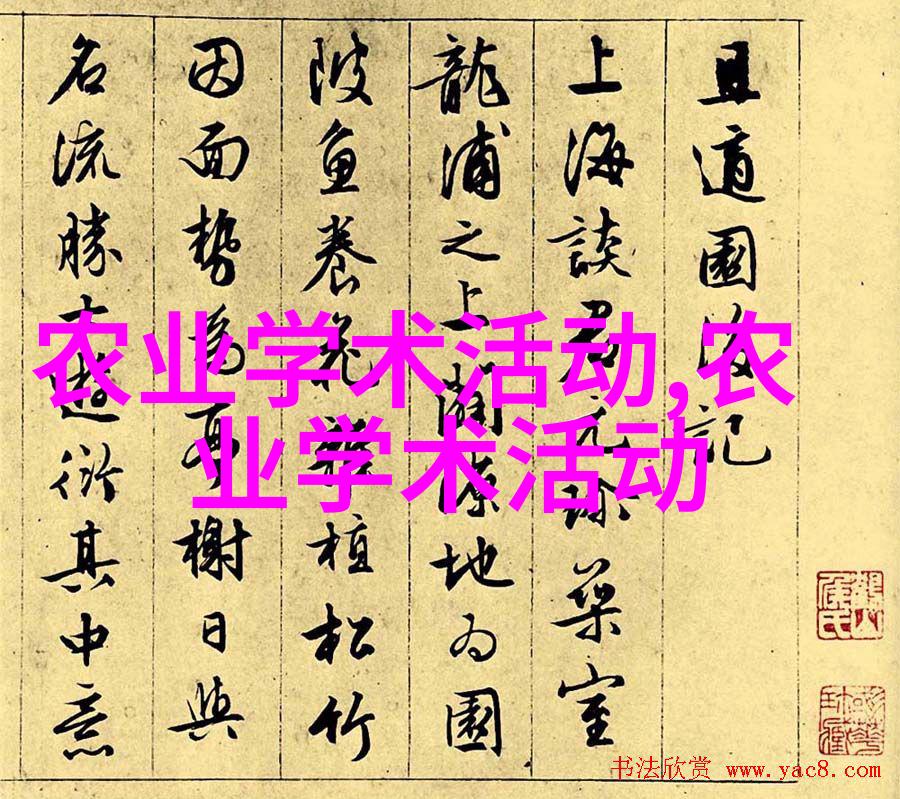 且適園後記
上海談君築室
龍浦之上闢地為園
陂魚養花植松竹
因面勢為榭日與
名流勝士遊衍其中意
农业学术活动,农
业学术活动
书法欣赏 www.yac8.com